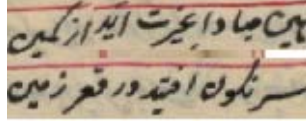 هین مبادا غیرت آید از کمین
سرنگون افتید در قعر زمین